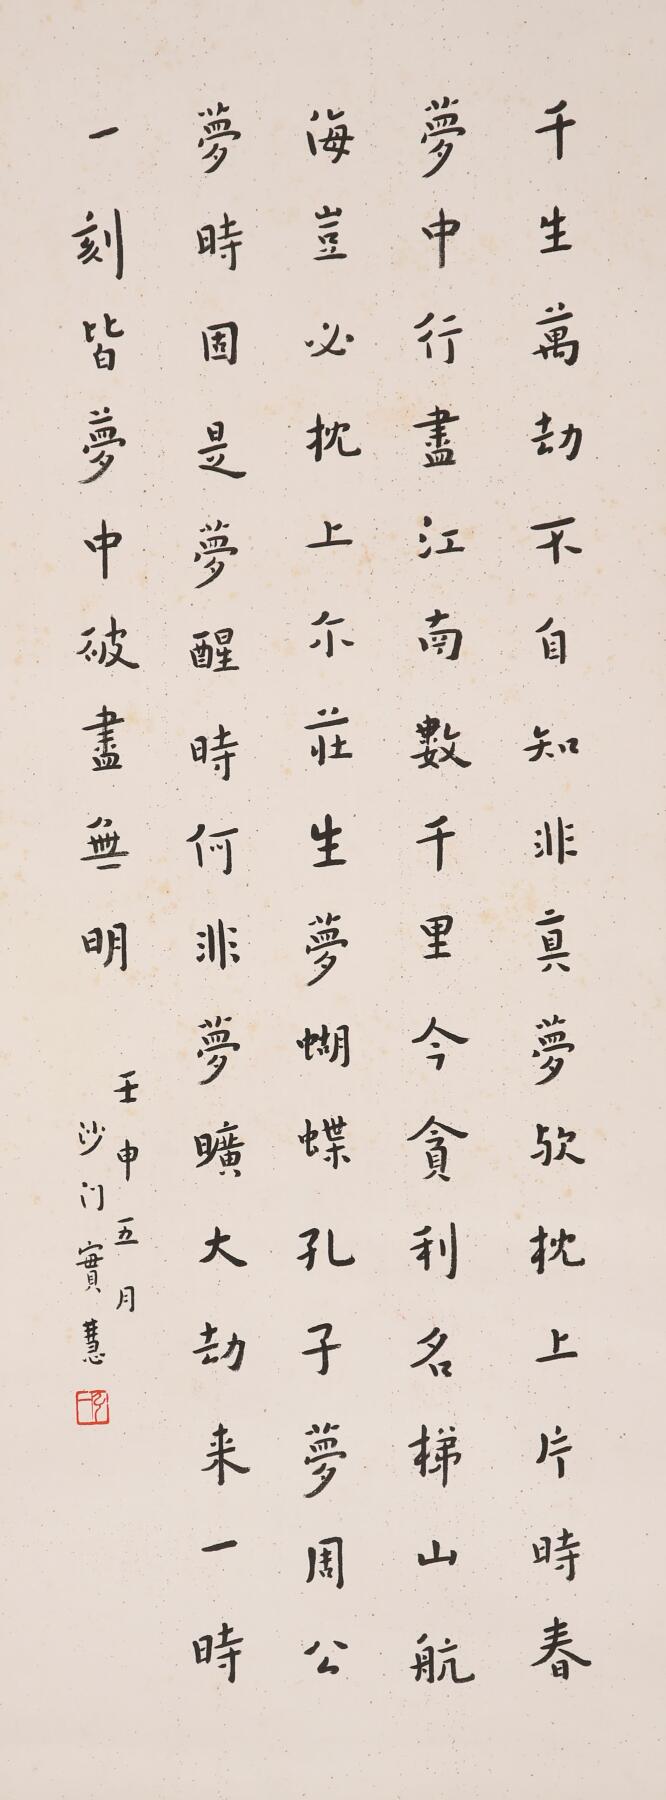 千生萬劫不自知非真夢歟枕上片時春
夢中行盡江南數千里今貪利名梯山航
海豈必枕上尔莊生夢蝴蝶孔子夢周公
夢時固是夢醒時何非夢曠大劫来一時
一刻皆夢中破盡無明
壬申五月
沙门實慧